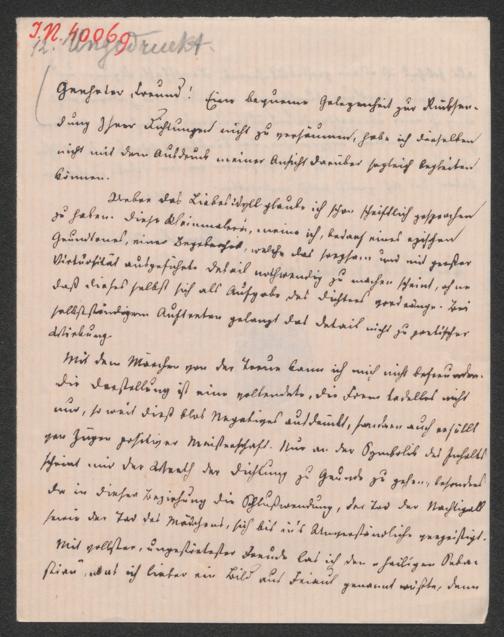 I.N. 40069
12. Ungedruckt.
Geehrter Freund! Eine bequeme Gelegenheit zur Rücksen-
dung Ihrer Dichtungen nicht zu versäumen, habe ich dieselben
nicht mit dem Ausdruck meiner Ansicht darüber sogleich begleiten
können.
Ueber das Liebesidyll glaube ich schon schriftlich gesprochen
zu haben. Diese Kleinmalerei, meine ich, bedarf eines epischen
Grundtones, einer Begebenheit, welche das sorgsam und mit großer
Virtuosität ausgeführte Detail nothwendig zu machen scheint, ohne
daß dieses selbst sich als Aufgabe des Dichters vordränge. Bei
selbstständigem Auftreten gelangt das Detail nicht zu poetischer
Wirkung.
Mit dem Märchen von der Treue kann ich mich nicht befreunden.
Die Darstellung ist eine vollendete, die Form tadellos nicht
nur, so weit dieß blos Negatives ausdrückt, sondern auch erfüllt
von Zügen positiver Meisterschaft. Nur an der Symbolik des Inhalts
scheint mir der Werth der Dichtung zu Grunde zu gehen, besonders
da in dieser Beziehung die Schlußwendung, der Tod der Nachtigall
sowie der Tod des Mädchens, sich bis in's Unverständliche vergeistigt.
Mit vollster, ungetrübtester Freude las ich den „heiligen Seba-
stian", was ich lieber ein Bild aus Friaul genannt wüßte, denn